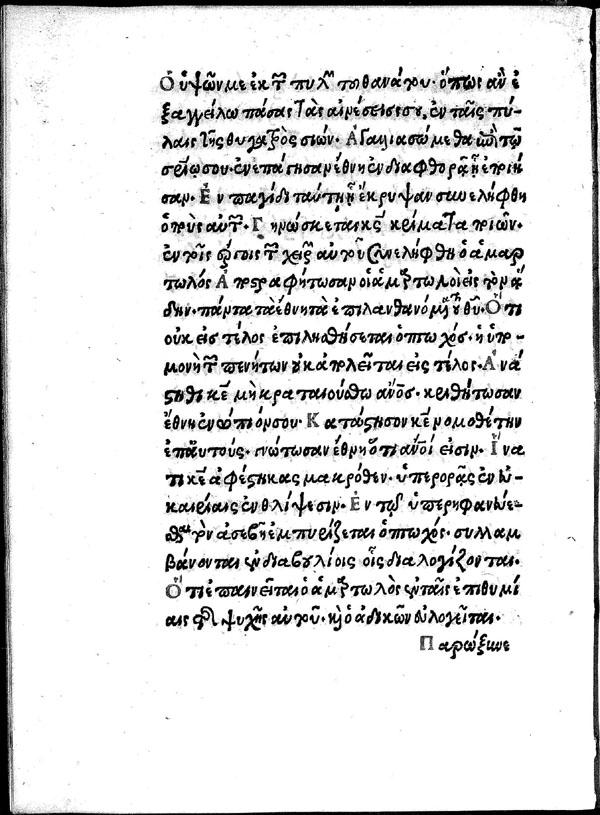 Ὁ ὑψῶν με ἐκ τῶν πυλῶν τοῦ θανάτου· ὅπως ἂν ἐ
ξαγγείλω πάσας τὰς αἰνέσεις σου, ἐν ταῖς πύ-
λαις τῆς θυγατρὸς σιών· Ἀγαλλιασώμεθα ἐπὶ τῷ
σωτηρίῳ σου· ἐνεπάγησαν ἔθνη ἐν διαφθορᾷ ᾗ ἐποίη
σαν· Ἐν παγίδι ταύτῃ ᾗ ἔκρυψαν συνελήφθη
ὁ ποὺς αὐτῶν· Γινώσκεται κς̄ κρίματα ποιῶν·
ἐν τοῖς ἔργοις τῶν χειρῶν αὐτοῦ συνελήφθη ὁ ἁμαρ
τωλός Ἀποστραφήτωσαν οἱ ἁμαρτωλοὶ εἰς τὸν ᾅ
δην· πάντα τὰ ἔθνη τὰ ἐπιλανθανόμενα τοῦ θῡ· Ὅτι
οὐκ εἰς τέλος ἐπιλησθήσεται ὁ πτωχός· ἡ ὑπο-
μονὴ τῶν πενήτων οὐκ ἀπολεῖται εἰς τέλος· Ἀνά
στηθι κε̄ μὴ κραταιούσθω ἄνο̄ς· κριθήτωσαν
ἔθνη ἐνώπιόν σου· Κατάστησον κε̄ νομοθέτην
ἐπ' αὐτούς· γνώτωσαν ἔθνη ὅτι ἄνο̄ί εἰσιν. Ἵνα
τί κε̄ ἀφέστηκας μακρόθεν· ὑπερορᾷς ἐν εὐ
καιρίαις ἐν θλίψεσιν· Ἐν τῷ ὑπερηφανεύε
σθαι τὸν ἀσεβῆ ἐμπυρίζεται ὁ πτωχός· συλλαμ
βάνονται ἐν διαβουλίοις οἷς διαλογίζονται·
Ὅτι ἐπαινεῖται ὁ ἁμαρτωλὸς ἐν ταῖς ἐπιθυμί
αις τῆς ψυχῆς αὐτοῦ· καὶ ὁ ἀδικῶν εὐλογεῖται·
Παρώξυνε